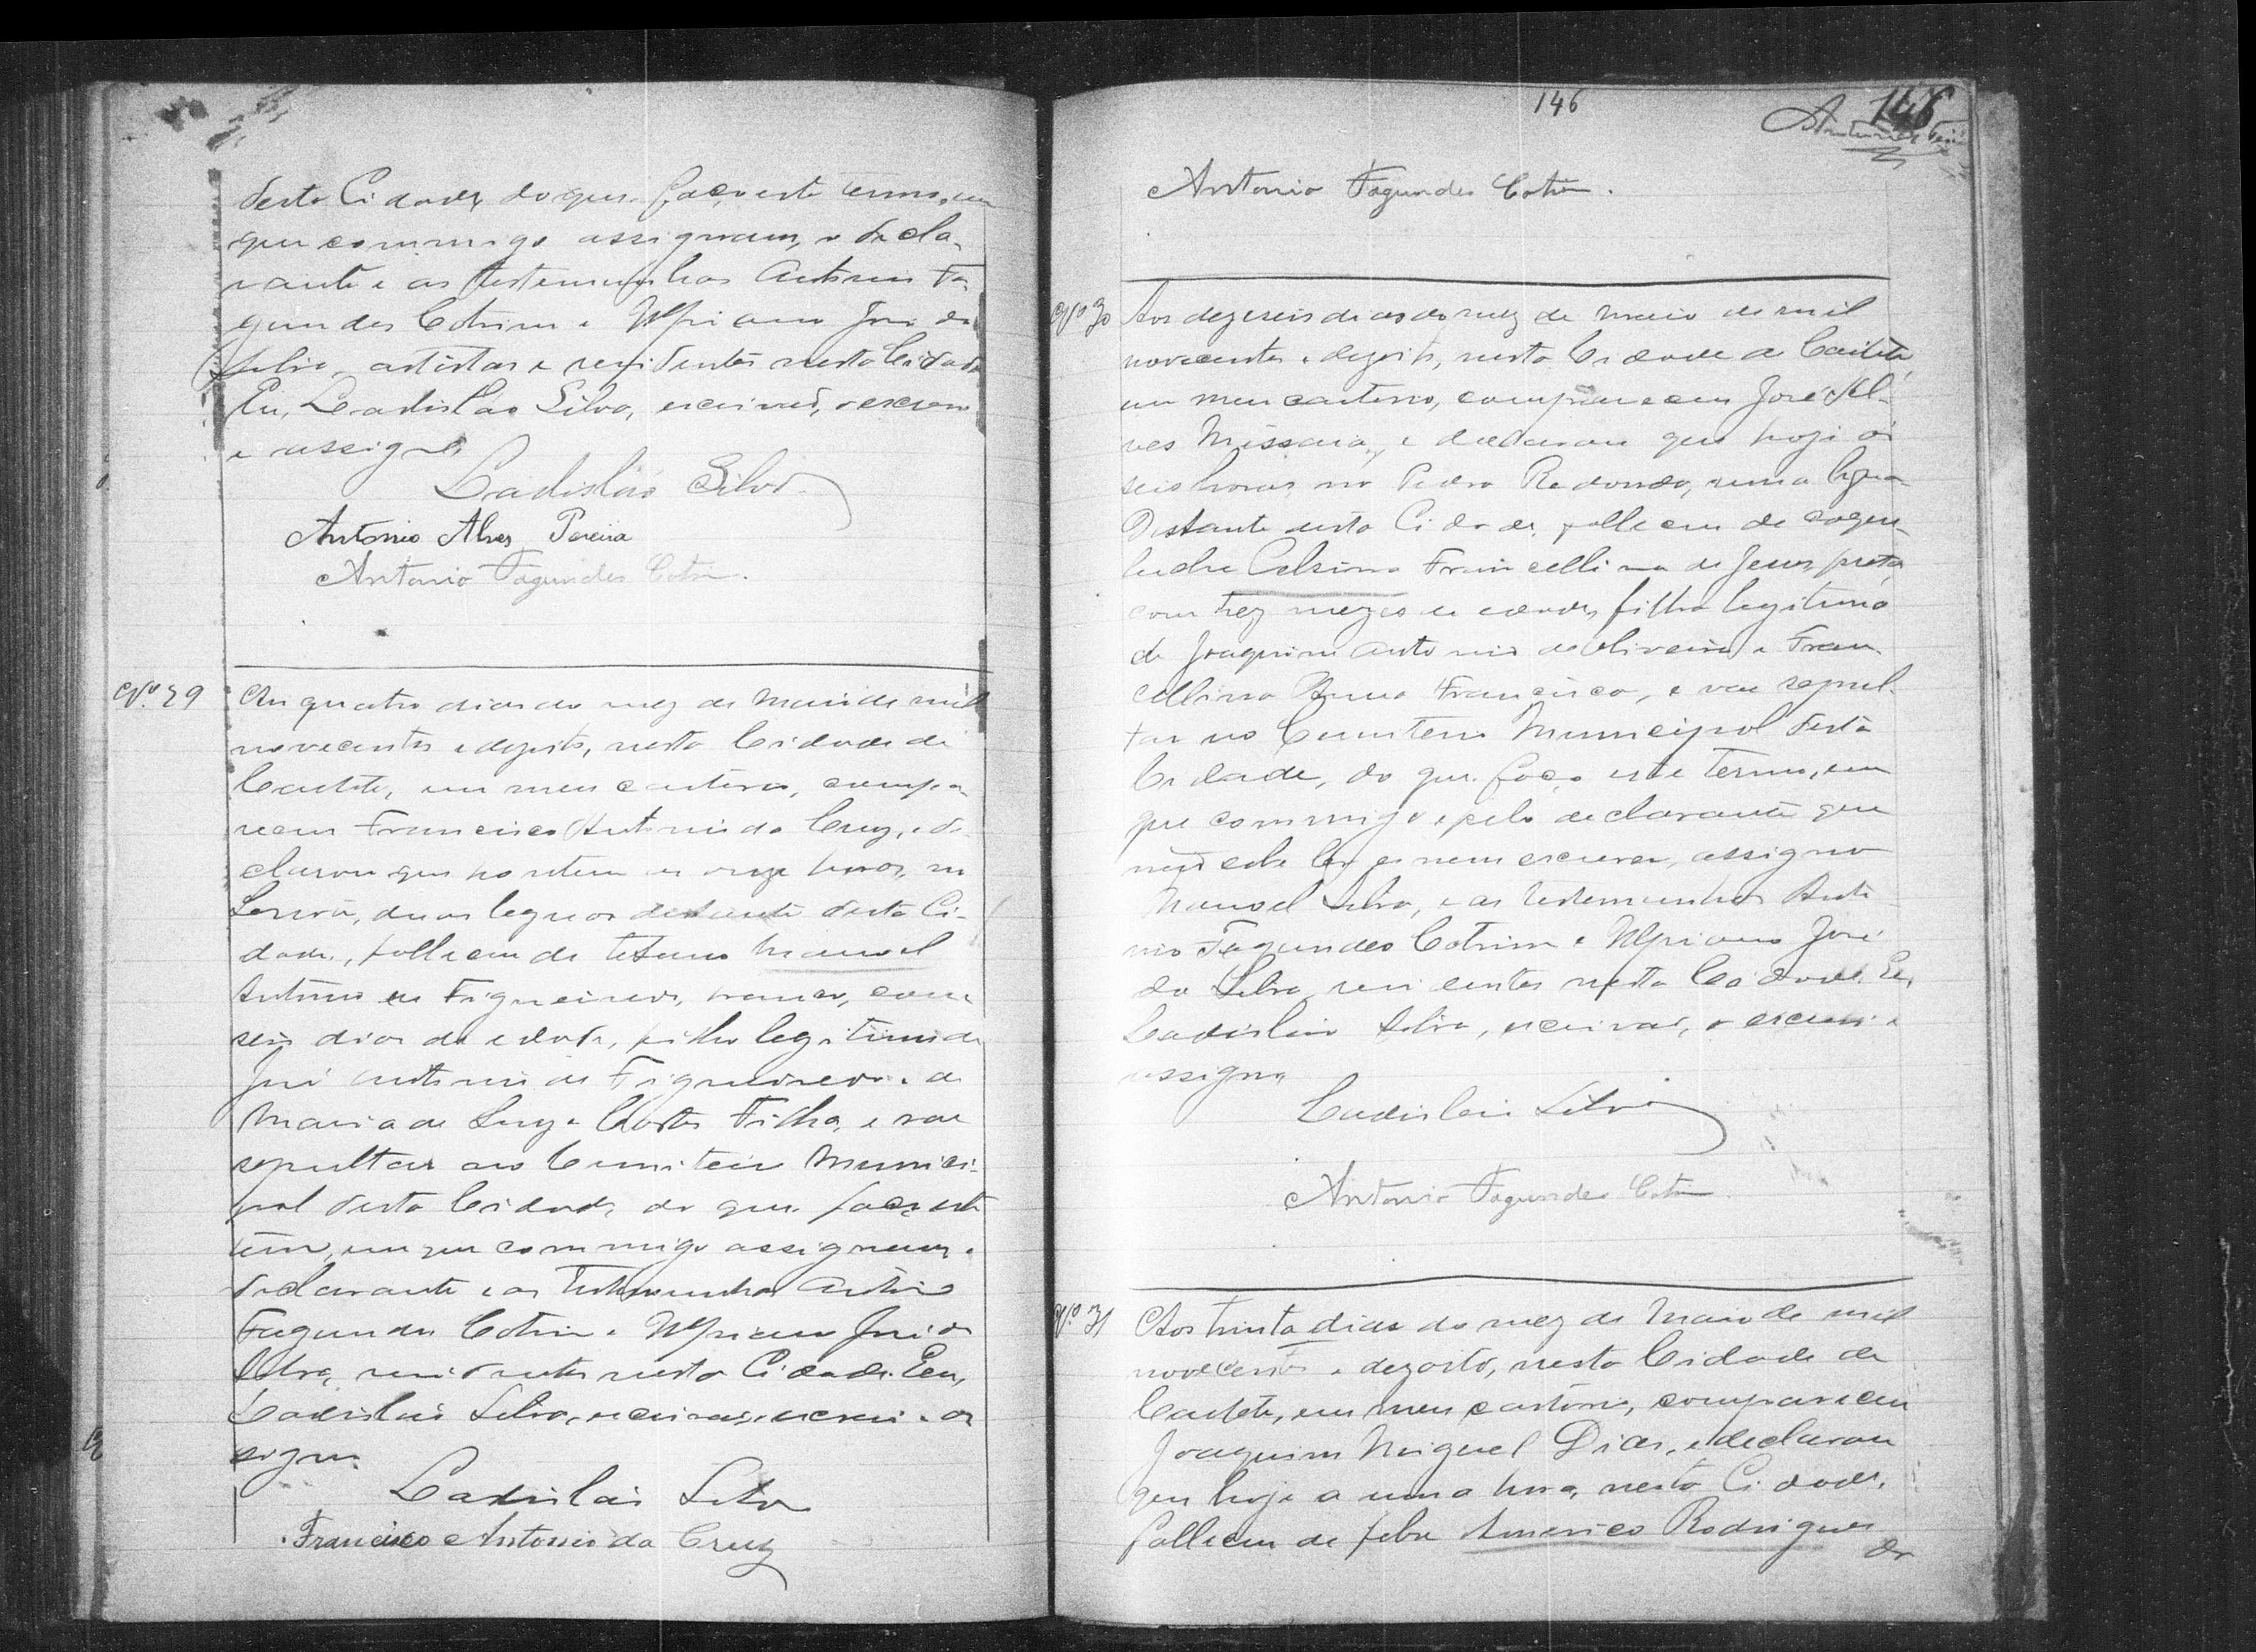 desta Cidade, do que faço este termo, em
que commigo assignam, o decla-
rante e as testemunhas Antonio Fa-
gundes Cotrim e José da
Silva, artistas e residentes nesta Cidade
Eu, Ladisláo Silva, escrivão, o escrevi
e assigno
Ladisláo Silva
Antonio Alves Pereira
Antonio Fagundes Cotrim.
Nº 29
Aos quatro dias do mez de Maio de mil
novecentos e dezoito, nesta Cidade de
Caeteté, em meu cartorio, compa-
receu Francisco Antonio da Cruz, e de-
clarou que hontem as onze horas, no
duas leguas distante desta Ci-
dade, falleceu de tetano Manoel
Antonio de Figueiredo, branco, com
seis dias de edade, filho legitimo de
José Antonio de Figueiredo e de
Maria da Luz e Costa Filha, e vae
sepultar no Cemiterio Munici-
pal desta Cidade, do que faço este
termo, em que commigo assignam o
declarante e as testemunhas Antonio
Fagundes Cotrim e José da
Silva, residentes nesta Cidade. Eu,
Ladisláo Silva, escrivão, escrevi e as
signo
Ladisláo Silva
Francisco Antonio da Cruz
146
146
Antonio Fagundes Cotrim.
Nº 30
Aos dezeseis dias do mez de Maio de mil
novecentos e dezoito, nesta Cidade de Caeteté,
em meu cartorio, compareceu José Al-
ves Missara, e declarou que hoje ás
seis horas no Pedra Redonda, uma legua
distante desta Cidade, falleceu de coque-
luche Celsina Francellina de Jesus, preta,
com trez mezes de edade, filha legitima
de Joaquim Antonio de Oliveira e Fran-
cellina Anna Francisca, e vae sepul-
tar no Cemiterio Municipal desta
Cidade, do que faço este termo, em
que commigo e pelo declarante que
não sabe ler e nem escrever, assigna
Manoel Silva, e as testemunhas Anto-
nio Fagundes Cotrim e José
da Silva residentes nesta Cidade. Eu,
Ladisláo Silva, escrivão, o escrevi e
assigno
Ladisláo Silva
Antonio Fagundes Cotrim
Nº 31
Aos trinta dias do mez de Maio de mil
novecentos e dezoito, nesta Cidade de
Caeteté, em meu cartorio, compareceu
Joaquim Miguel Dias, e declarou
que hoje a uma hora, nesta Cidade,
falleceu de febre Americo Rodrigues
da